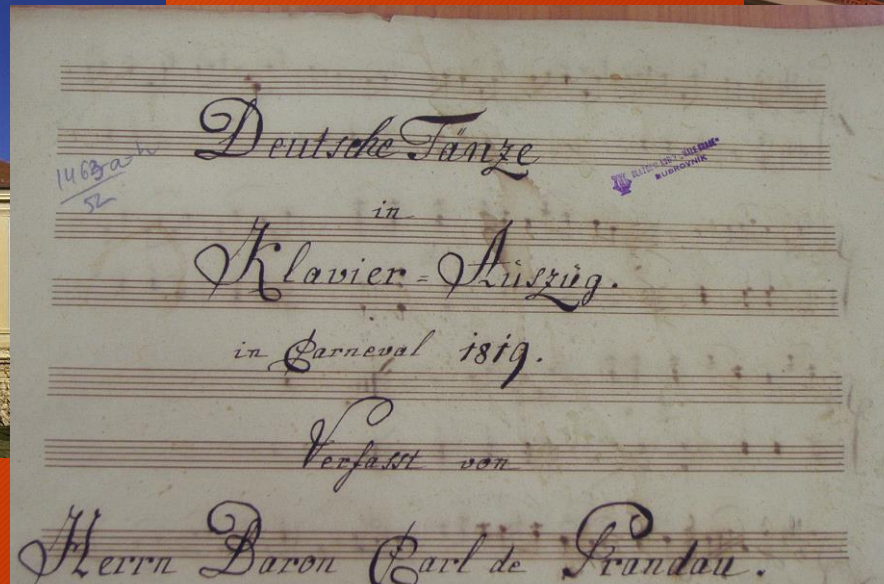 Deutsche Tänze
1463 a-h
52
DUBROVNIK
in
Klavier = Auszug.
in Carneval 1819.
Verfasst von
Herrn Baron Carl de Prandau.